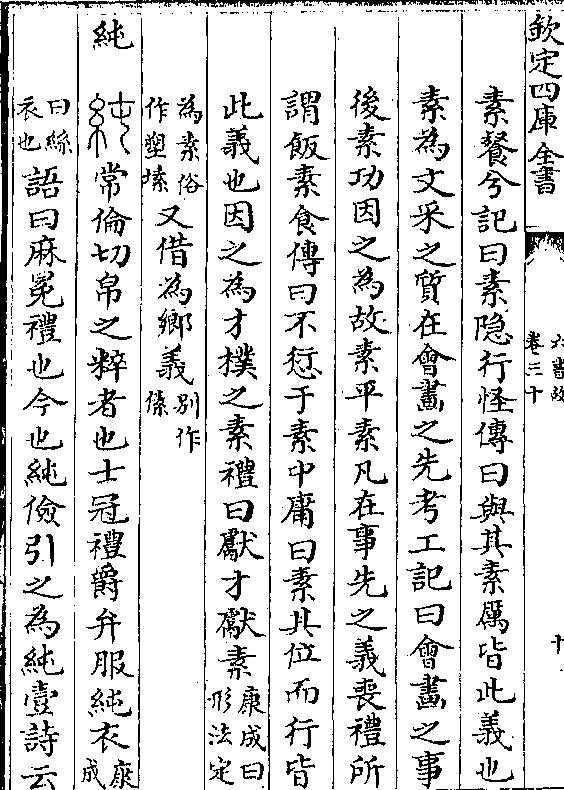 欽定四庫全書
六書故
卷三十
十
素餐兮記曰素隐行怪傳曰與其素厲皆此義也
素為文采之質在會畫之先考工記曰會畫之事
後素功因之為故素平素凡在事先之義喪禮所
謂飯素食傳曰不愆于素中庸曰素其位而行皆
此義也因之為才樸之素禮曰獻才獻素康成曰形法定
為素俗作塑塐又借為鄉義別作傃
純 純常倫切帛之粹者也士冠禮爵弁服純衣康成
曰絲衣也語曰麻冕禮也今也純儉引之為純壹詩云